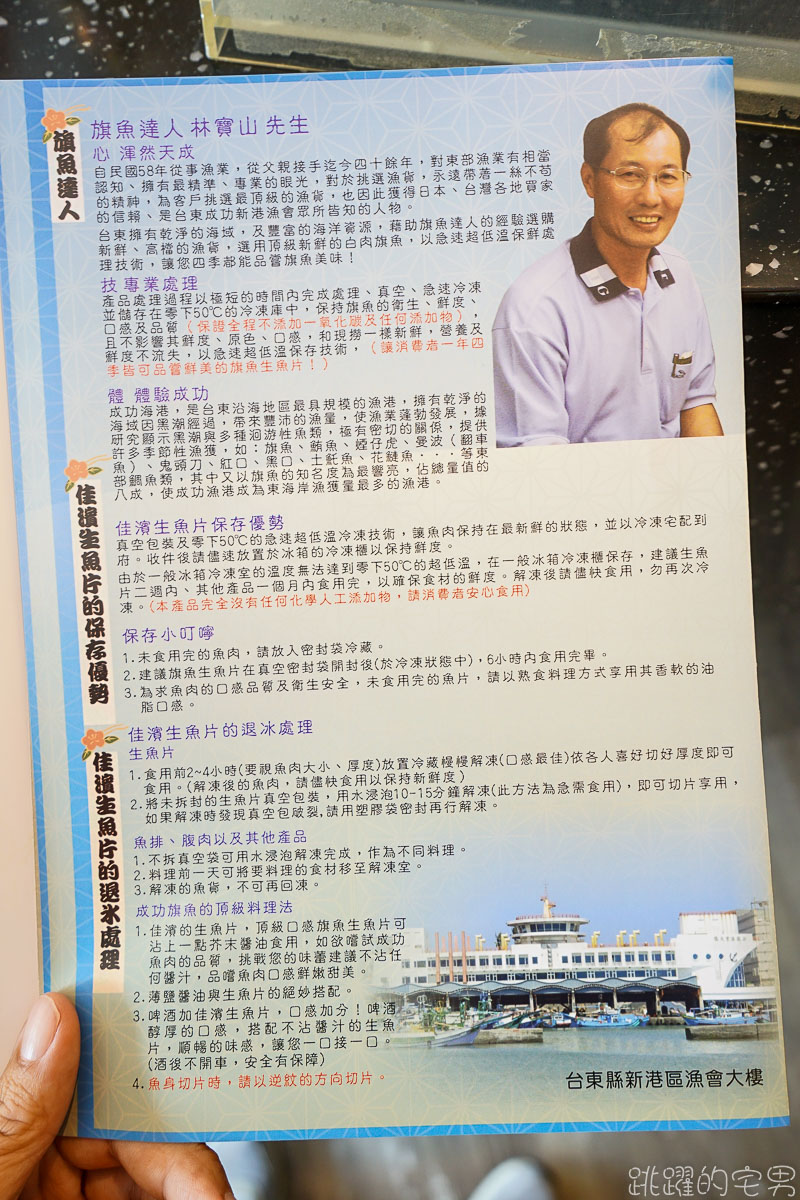 旗魚達人
旗魚達人 林寶山 先生
心 渾然天成
自民國58年從事漁業，從父親接手迄今四十餘年，對東部漁業有相當
認知、擁有最精準、專業的眼光，對於挑選漁貨，永遠帶著一絲不苟
的精神，為客戶挑選最頂級的漁貨，也因此獲得日本、台灣各地買家
的信賴、是台東成功新港漁會眾所皆知的人物。
台東擁有乾淨的海域，及豐富的海洋資源，藉助旗魚達人的經驗選購
新鮮、高檔的漁貨，選用頂級新鮮的白肉旗魚，以急速超低溫保鮮處
理技術，讓您四季都能品嘗旗魚美味！
技 專業處理
產品處理過程以極短的時間內完成處理、真空、急速冷凍
並儲存在零下50℃的冷凍庫中，保持旗魚的衛生、鮮度、
口感及品質（保證全程不添加一氧化碳及任何添加物），
且不影響其鮮度、原色、口感，和現撈一樣新鮮，營養及
鮮度不流失，以急速超低溫保存技術，（讓消費者一年四
季皆可品嘗鮮美的旗魚生魚片！）
體 體驗成功
成功海港，是台東沿海地區最具規模的漁港，擁有乾淨的
海域因黑潮經過，帶來豐沛的漁量，使漁業蓬勃發展，據
研究顯示黑潮與多種洄游性魚類，極有密切的關係，提供
許多季節性漁獲，如：旗魚、鮪魚、煙仔虎、曼波（翻車
魚）、鬼頭刀、紅口、黑口、土魠魚、花鰱魚・・・等東
部鯛魚類，其中又以旗魚的知名度為最響亮，佔總量值的
八成，使成功漁港成為東海岸漁獲量最多的漁港。
佳濱生魚片的保存優勢
佳濱生魚片保存優勢
真空包裝及零下50℃的急速超低溫冷凍技術，讓魚肉保持在最新鮮的狀態，並以冷凍宅配到
府。收件後請儘速放置於冰箱的冷凍櫃以保持鮮度。
由於一般冰箱冷凍室的溫度無法達到零下50℃的超低溫，在一般冰箱冷凍櫃保存，建議生魚
片二週內、其他產品一個月內食用完，以確保食材的鮮度。解凍後請儘快食用，勿再次冷
凍。(本產品完全沒有任何化學人工添加物，請消費者安心食用)
保存小叮嚀
1.未食用完的魚肉，請放入密封袋冷藏。
2.建議旗魚生魚片在真空密封袋開封後(於冷凍狀態中)，6小時內食用完畢。
3.為求魚肉的口感品質及衛生安全，未食用完的魚片，請以熟食料理方式享用其香軟的油
脂口感。
佳濱生魚片的退冰處理
佳濱生魚片的退冰處理
生魚片
1.食用前2~4小時(要視魚肉大小、厚度)放置冷藏慢慢解凍(口感最佳)依各人喜好切好厚度即可
食用。(解凍後的魚肉，請儘快食用以保持新鮮度)
2.將未拆封的生魚片真空包裝，用水浸泡10-15分鐘解凍(此方法為急需食用)，即可切片享用，
如果解凍時發現真空包破裂,請用塑膠袋密封再行解凍。
魚排、腹肉以及其他產品
1.不拆真空袋可用水浸泡解凍完成，作為不同料理。
2.料理前一天可將要料理的食材移至解凍室。
3.解凍的魚貨，不可再回凍。
成功旗魚的頂級料理法
1.佳濱的生魚片，頂級口感旗魚生魚片可
沾上一點芥末醬油食用，如欲嚐試成功
魚肉的品質，挑戰您的味蕾建議不沾任
何醬汁，品嚐魚肉口感鮮嫩甜美。
2.薄鹽醬油與生魚片的絕妙搭配。
3.啤酒加佳濱生魚片，口感加分！啤酒
醇厚的口感，搭配不沾醬汁的生魚
片，順暢的味感，讓您一口接一口。
(酒後不開車，安全有保障)
4.魚身切片時，請以逆紋的方向切片。
台東縣新港區漁會大樓
跳躍的宅男